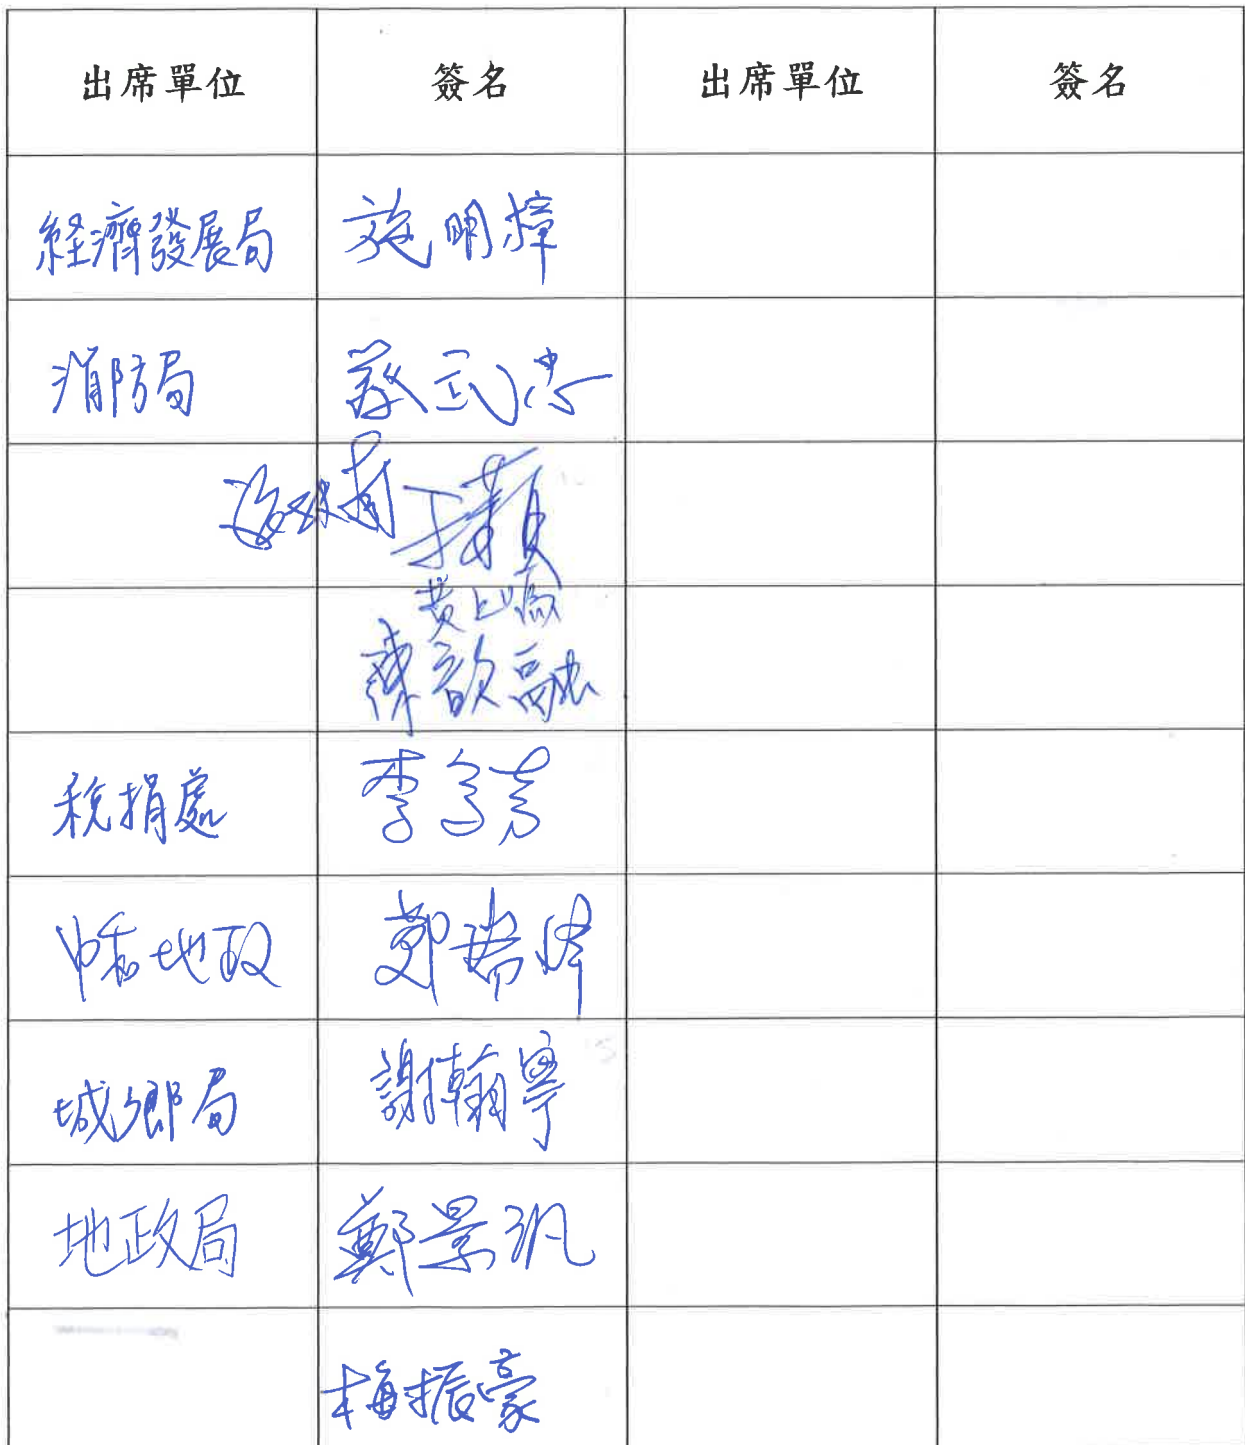 出席單位 簽名 出席單位 簽名
經濟發展局 施明樟
消防局 蔡武忠
黃上
陳歆融
稅捐處 李
地政 鄭瑞
城鄉局 謝翰寧
地政局 鄭景汎
梅振豪